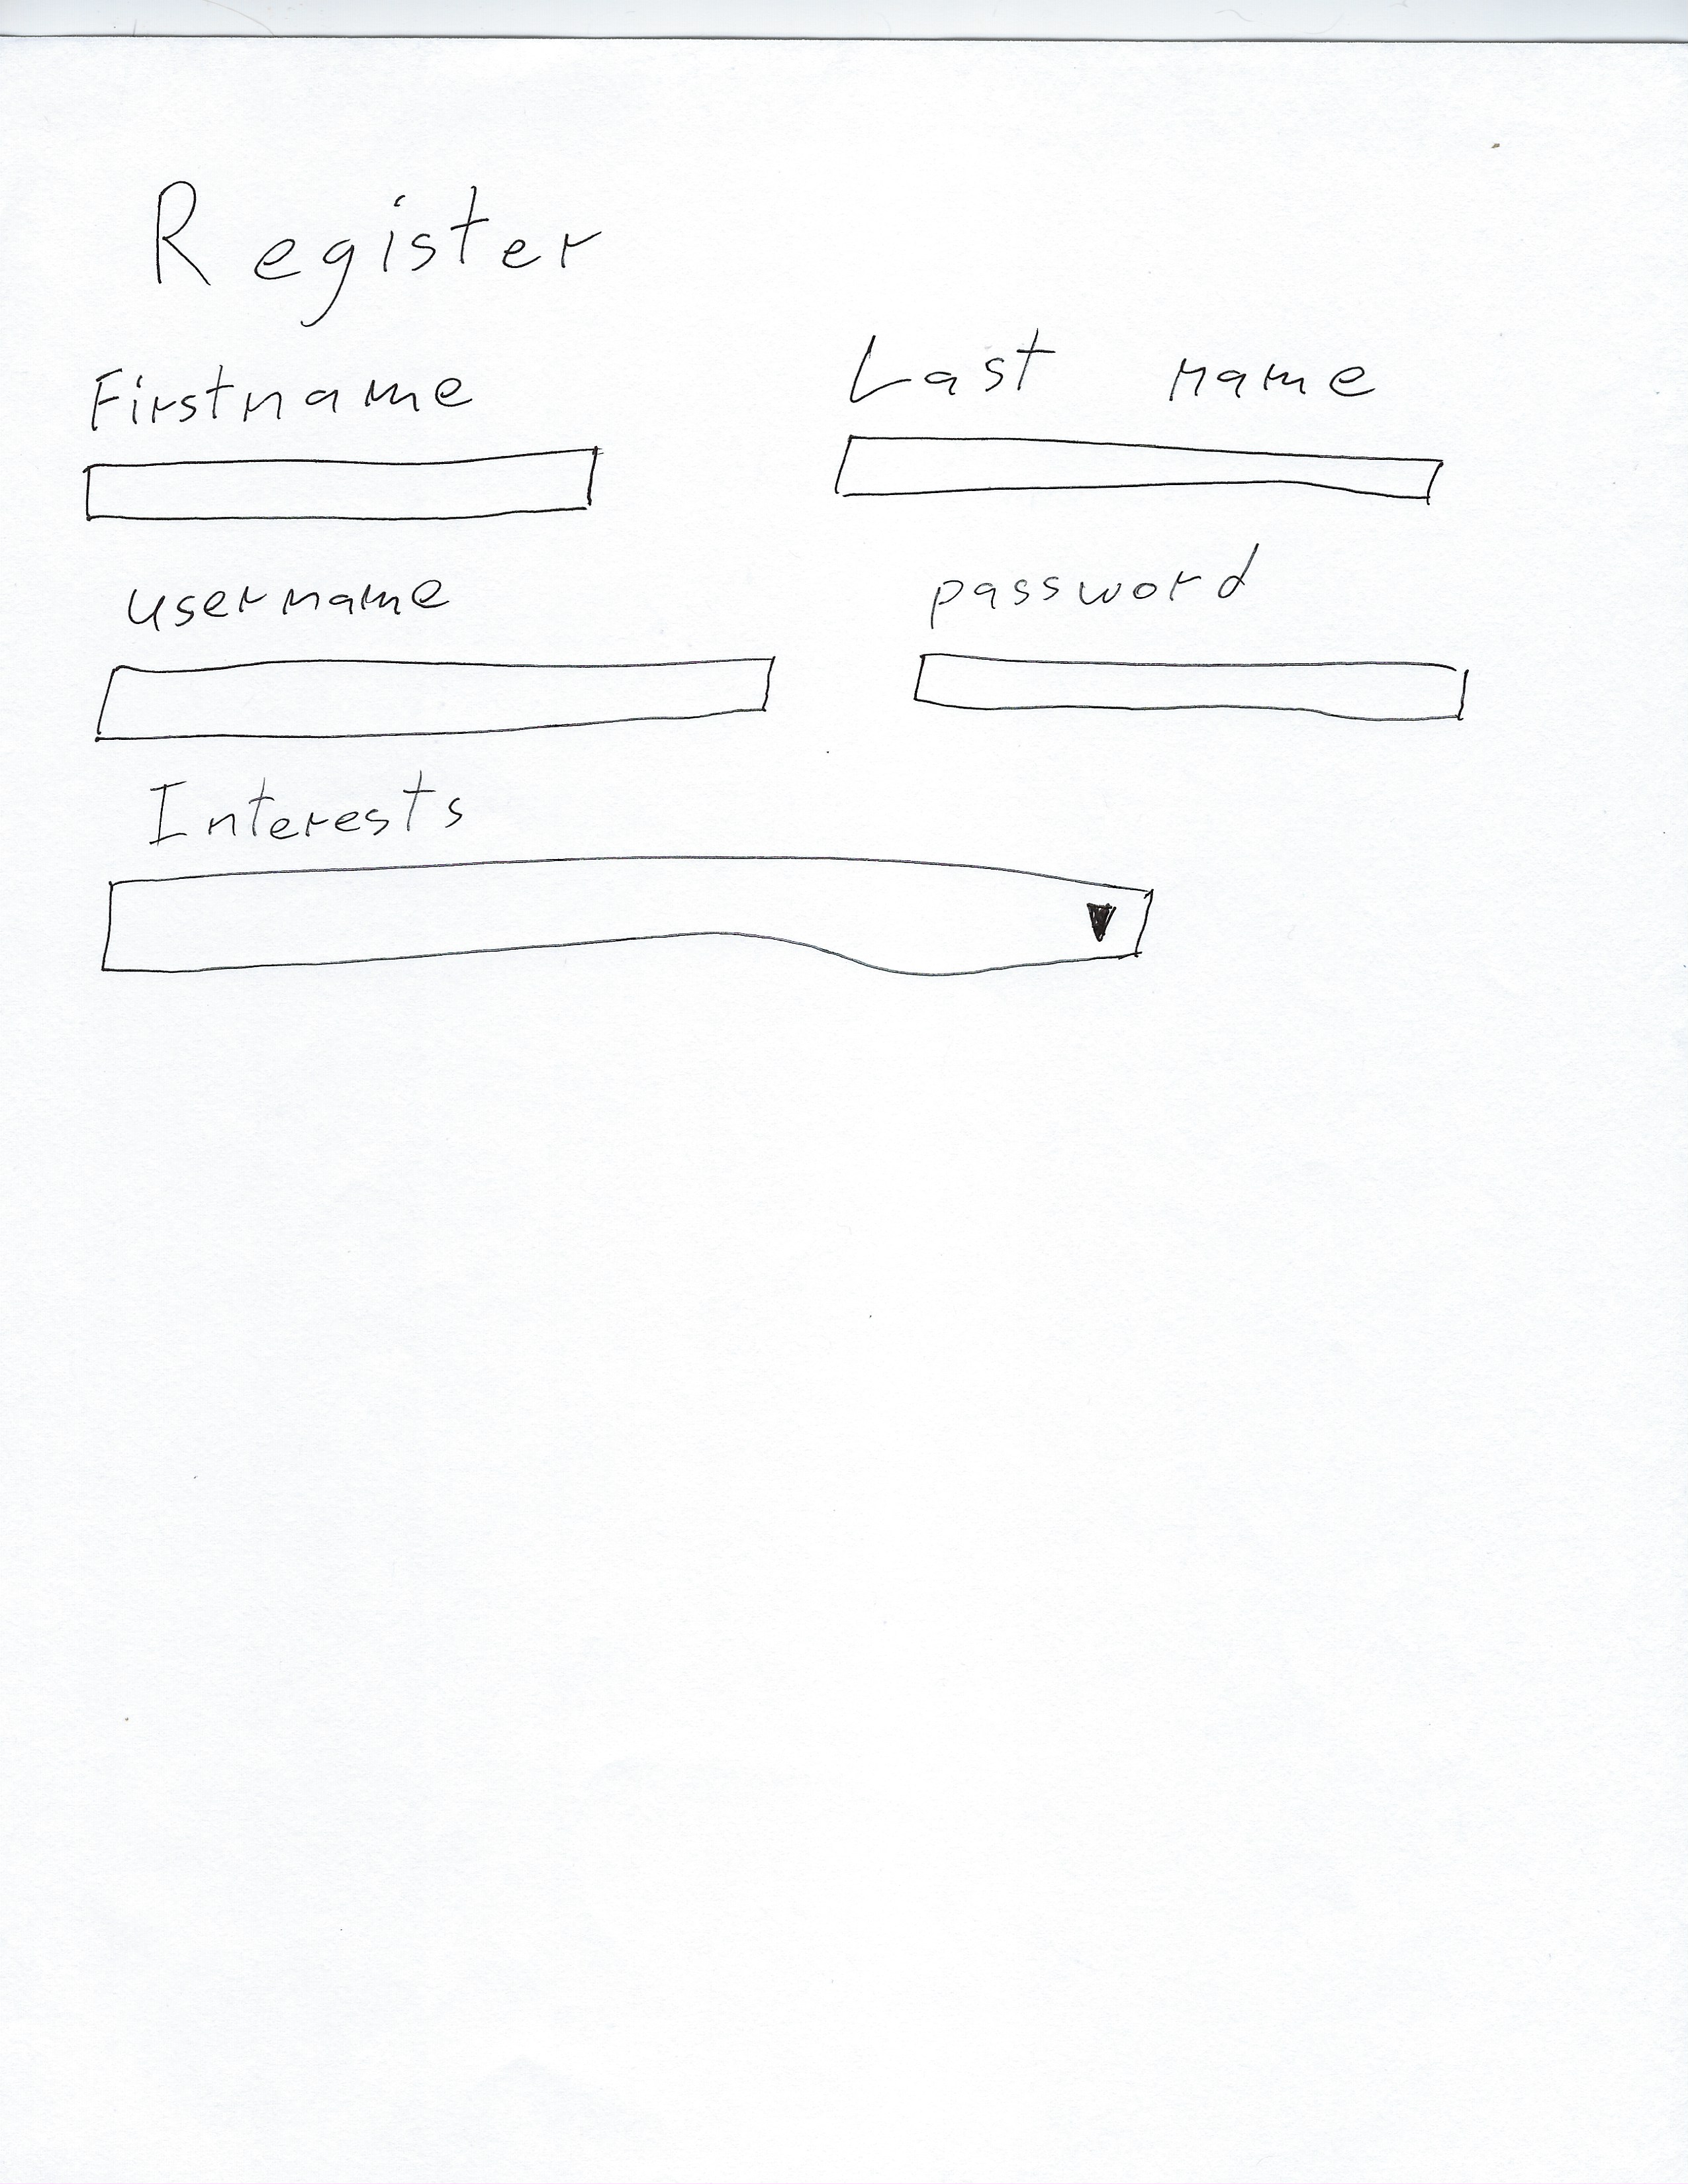 Register
Firstname
Last name
username
password
Interests